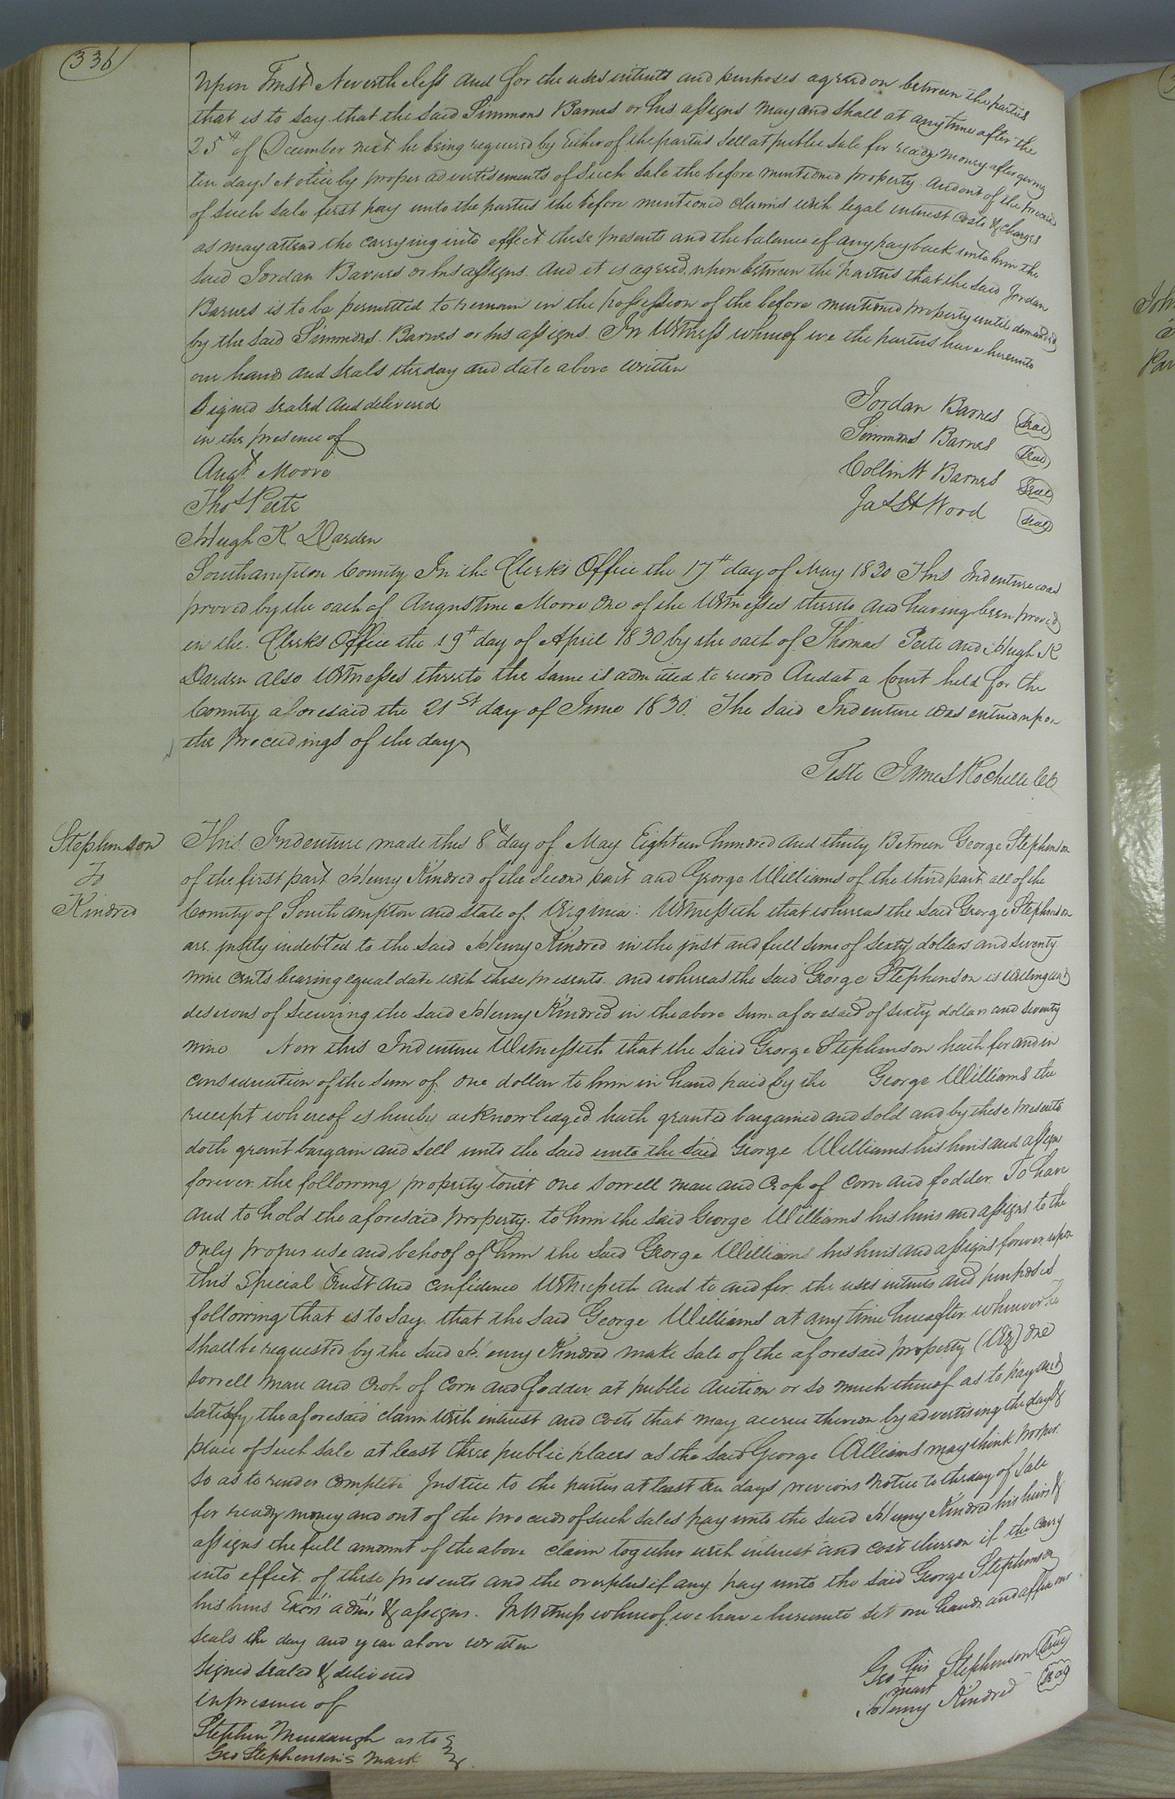 336
Upon Trust Nevertheless and for the uses intents and purposes agreed on between the parties
that is to say that the said Simmons Barnes or his assigns may and shall at any time after the
25th of December next he being required by Either of the parties sell at public sale for ready money after giving
ten days Notice by proper advertisements of such sale the before mentioned property and out of the proceeds
of such sale first pay unto the parties the before mentioned claims with legal interest costs & charges
as may attend the carrying into effect these presents and the balance if any pay back unto him the
said Jordan Barnes or his assigns. And it is agreed upon between the parties that the said Jordan
Barnes is to be permitted to remain in the possession of the before mentioned property until demanded
by the said Simmons Barnes or his assigns. In Witness whereof we the parties have hereunto
our hands and seals the day and date above written
Signed sealed and delivered
in the presence of
Augt Moore
Thos Peete
Hugh K Darden
Jordan Barnes Seal
Simmons Barnes Seal
Collin W Barnes Seal
Jas Wood Seal
Southampton County In the Clerks Office the 17th day of May 1830 This Indenture was
proved by the oath of Augustine Moore One of the Witnesses thereto and having been proved
in the Clerks Office the 19th day of April 1830 by the oath of Thomas Peete and Hugh K
Darden also Witnesses thereto the same is admitted to record And at a Court held for the
County aforesaid the 21st day of June 1830. The said Indenture was entered upon
the proceedings of the day
Teste James Rochelle CC
Stephenson
To
Kindred
This Indenture made this 8th day of May Eighteen hundred and thirty Between George Stephenson
of the first part Henry Kindred of the second part and George Williams of the third part all of the
County of Southampton and state of Virginia: Witnesseth that whereas the said George Stephenson
are justly indebted to the said Henry Kindred in the just and full sum of Sixty dollars and seventy
nine cents bearing equal date with these presents and whereas the said George Stephenson is willing and
desirous of securing the said Henry Kindred in the above sum aforesaid of sixty dollars and seventy
nine Now this Indenture Witnesseth that the said George Stephenson hath for and in
consideration of the sum of one dollar to him in hand paid by the George Williams the
receipt whereof is hereby acknowledged hath granted bargained and sold and by these presents
doth grant bargain and sell unto the said unto the said George Williams his heirs and assigns
forever the following property towit One Sorrell mare and Crop of Corn and fodder To have
and to hold the aforesaid property to him the said George Williams his heirs and assigns to the
only proper use and behoof of him the said George Williams his heirs and assigns forever upon
this Special Trust and Confidence Witnesseth and to and for the uses intents and purposes
following that is to say that the said George Williams at any time hereafter whenever he
shall be requested by the said Henry Kindred make sale of the aforesaid property (Viz) One
Sorrell Mare and Crop of Corn and fodder at public Auction or so much thereof as to pay and
satisfy the aforesaid claim with interest and costs that may accrue thereon by advertising the day &
place of such sale at least three public places as the said George Williams may think proper
so as to render complete Justice to the parties at least ten days previous Notice to the day of Sale
for ready money and out of the proceeds of such sales pay unto the said Henry Kindred his heirs &
assigns the full amount of the above claim together with interest and cost thereon if the carry
into effect of these presents and the overplus if any pay unto the said George Stephenson
his heirs Exors admrs & assigns. In Witness whereof we have hereunto set our hands and affix our
seals the day and year above written
Signed sealed & delivered
in presence of
Stephen Mundaugh as to
Geo Stephenson's Mark
Geo his mark Stephenson Seal
Henry Kindred Seal